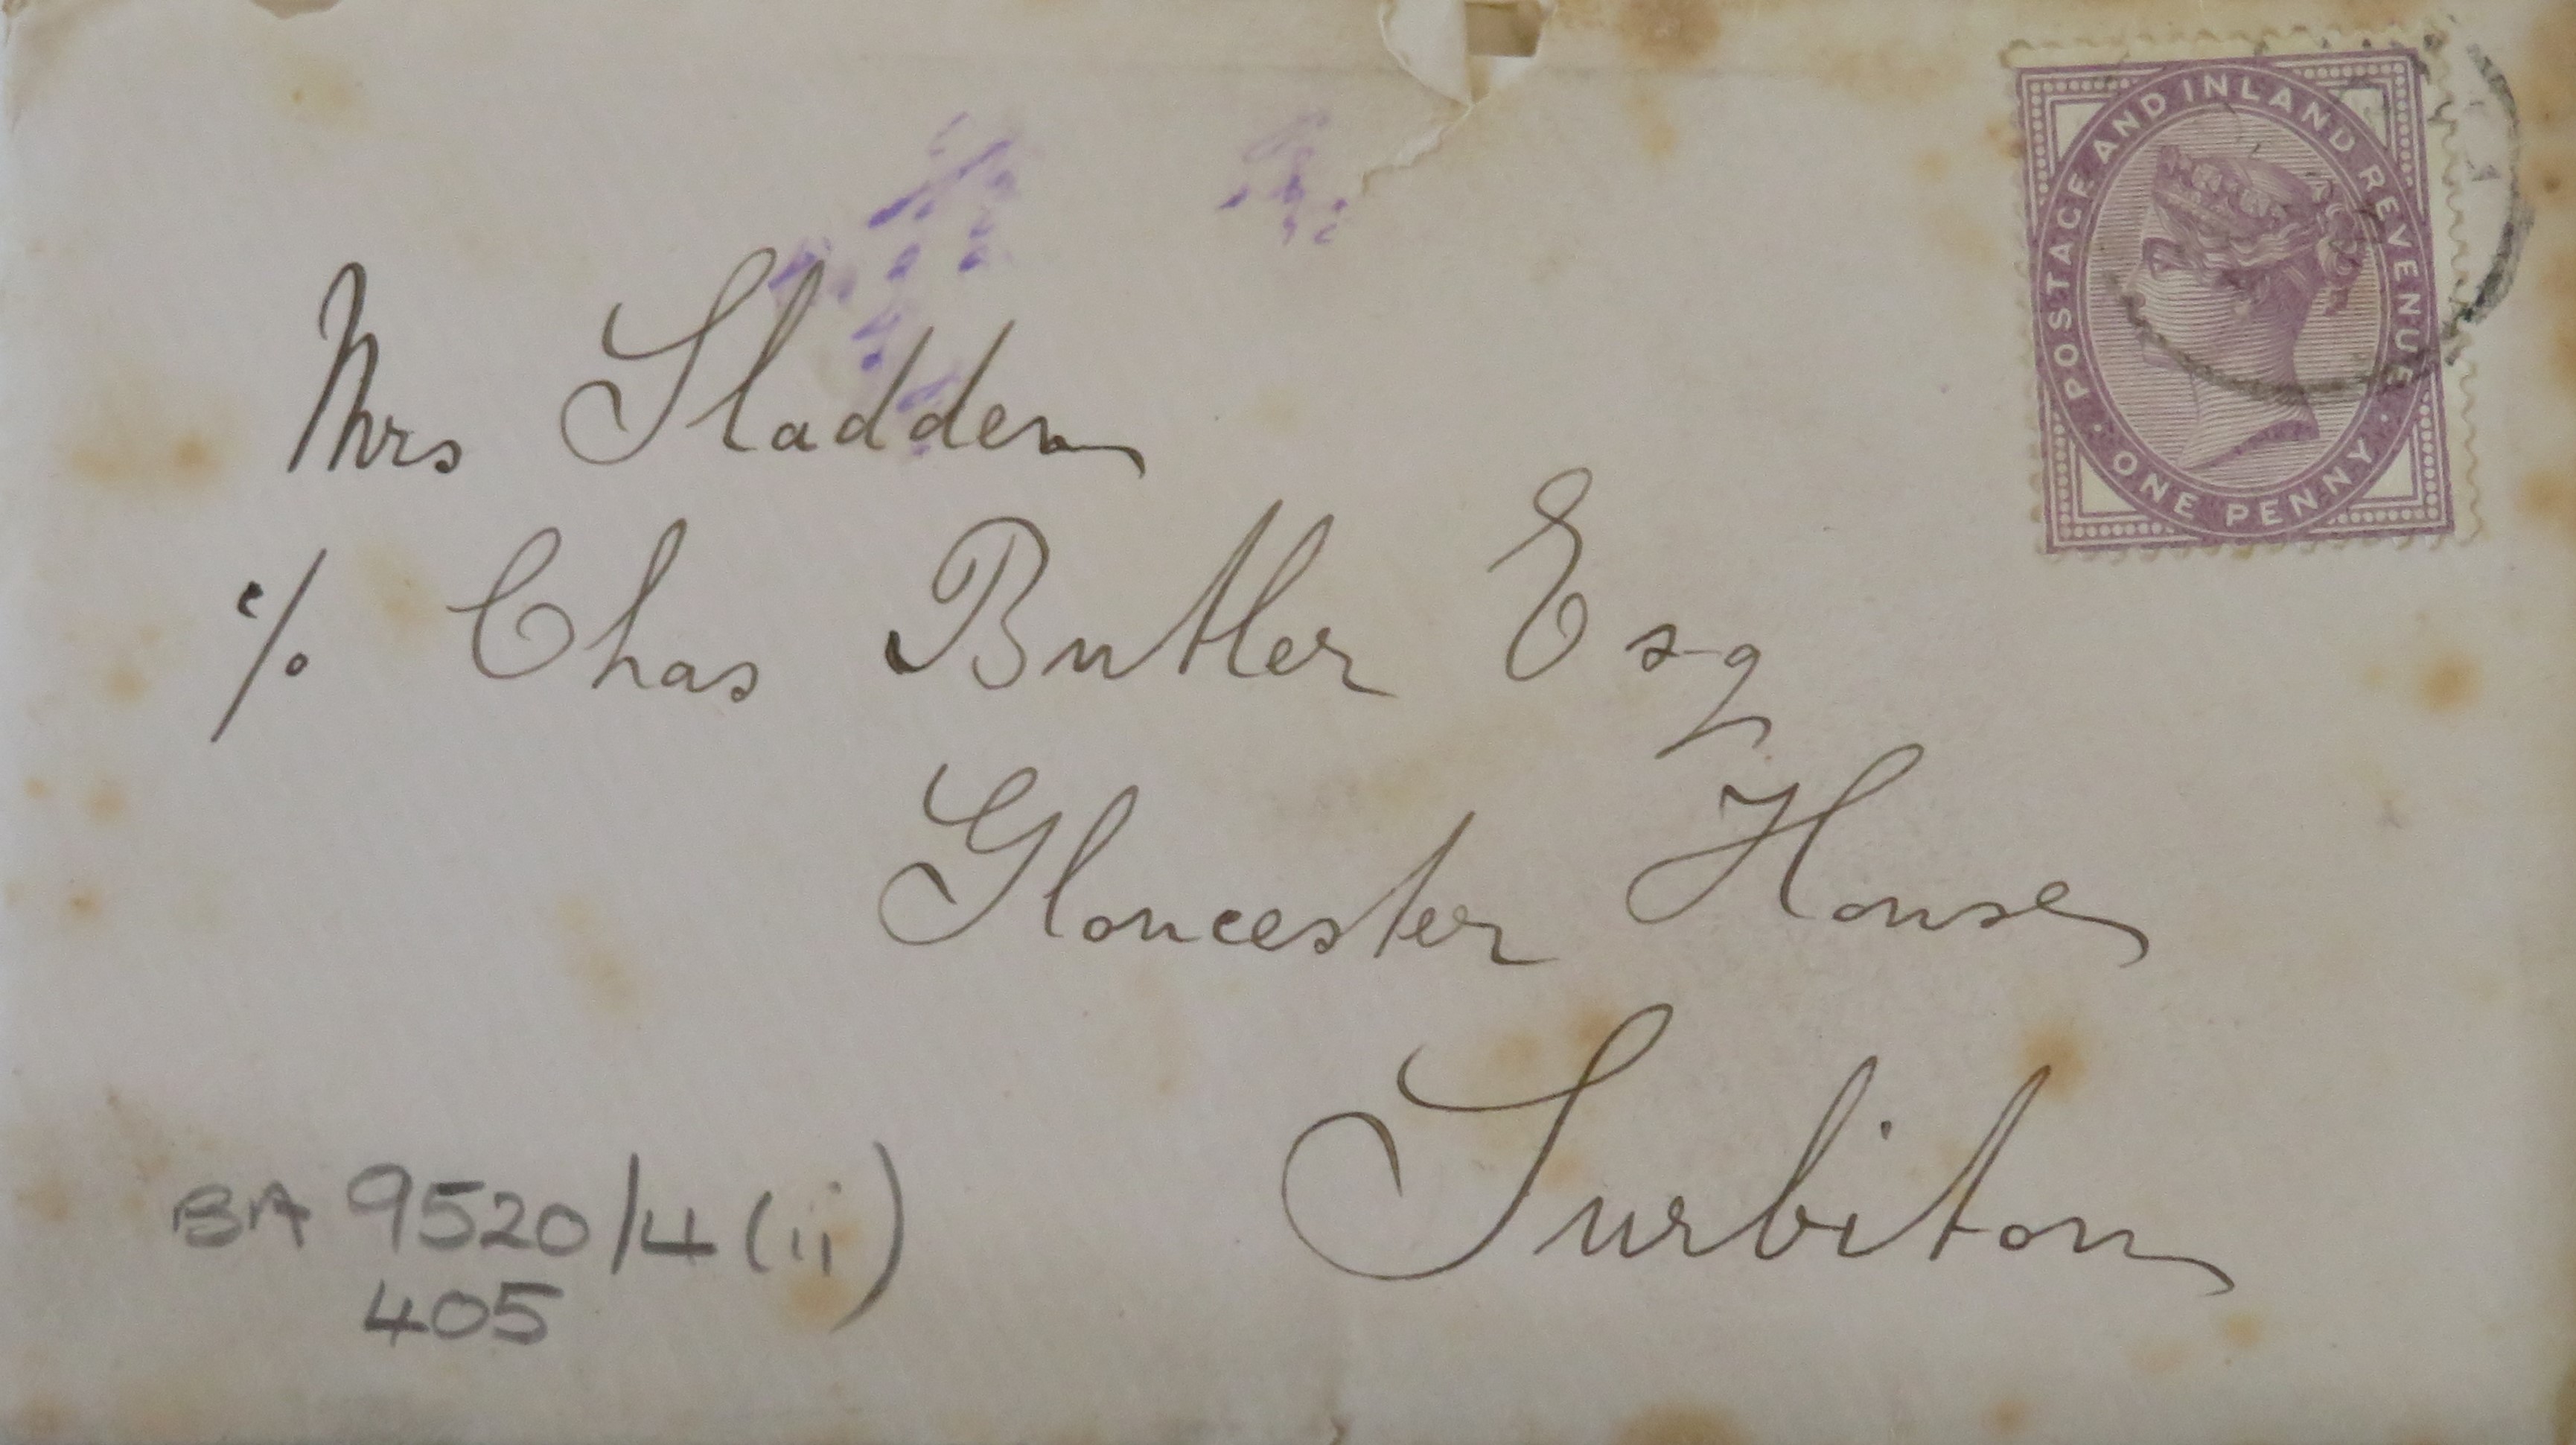 POSTAGE AND INLAND REVENUE
ONE PENNY
Mrs Sladden
c/o Chas Butler Esq
Gloucester House
Surbiton
BA 9520/4 (ii)
405